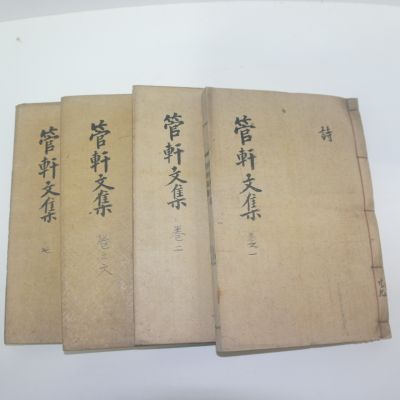 管軒文集 卷之一
詩
管軒文集 卷二
管軒文集
管軒文集